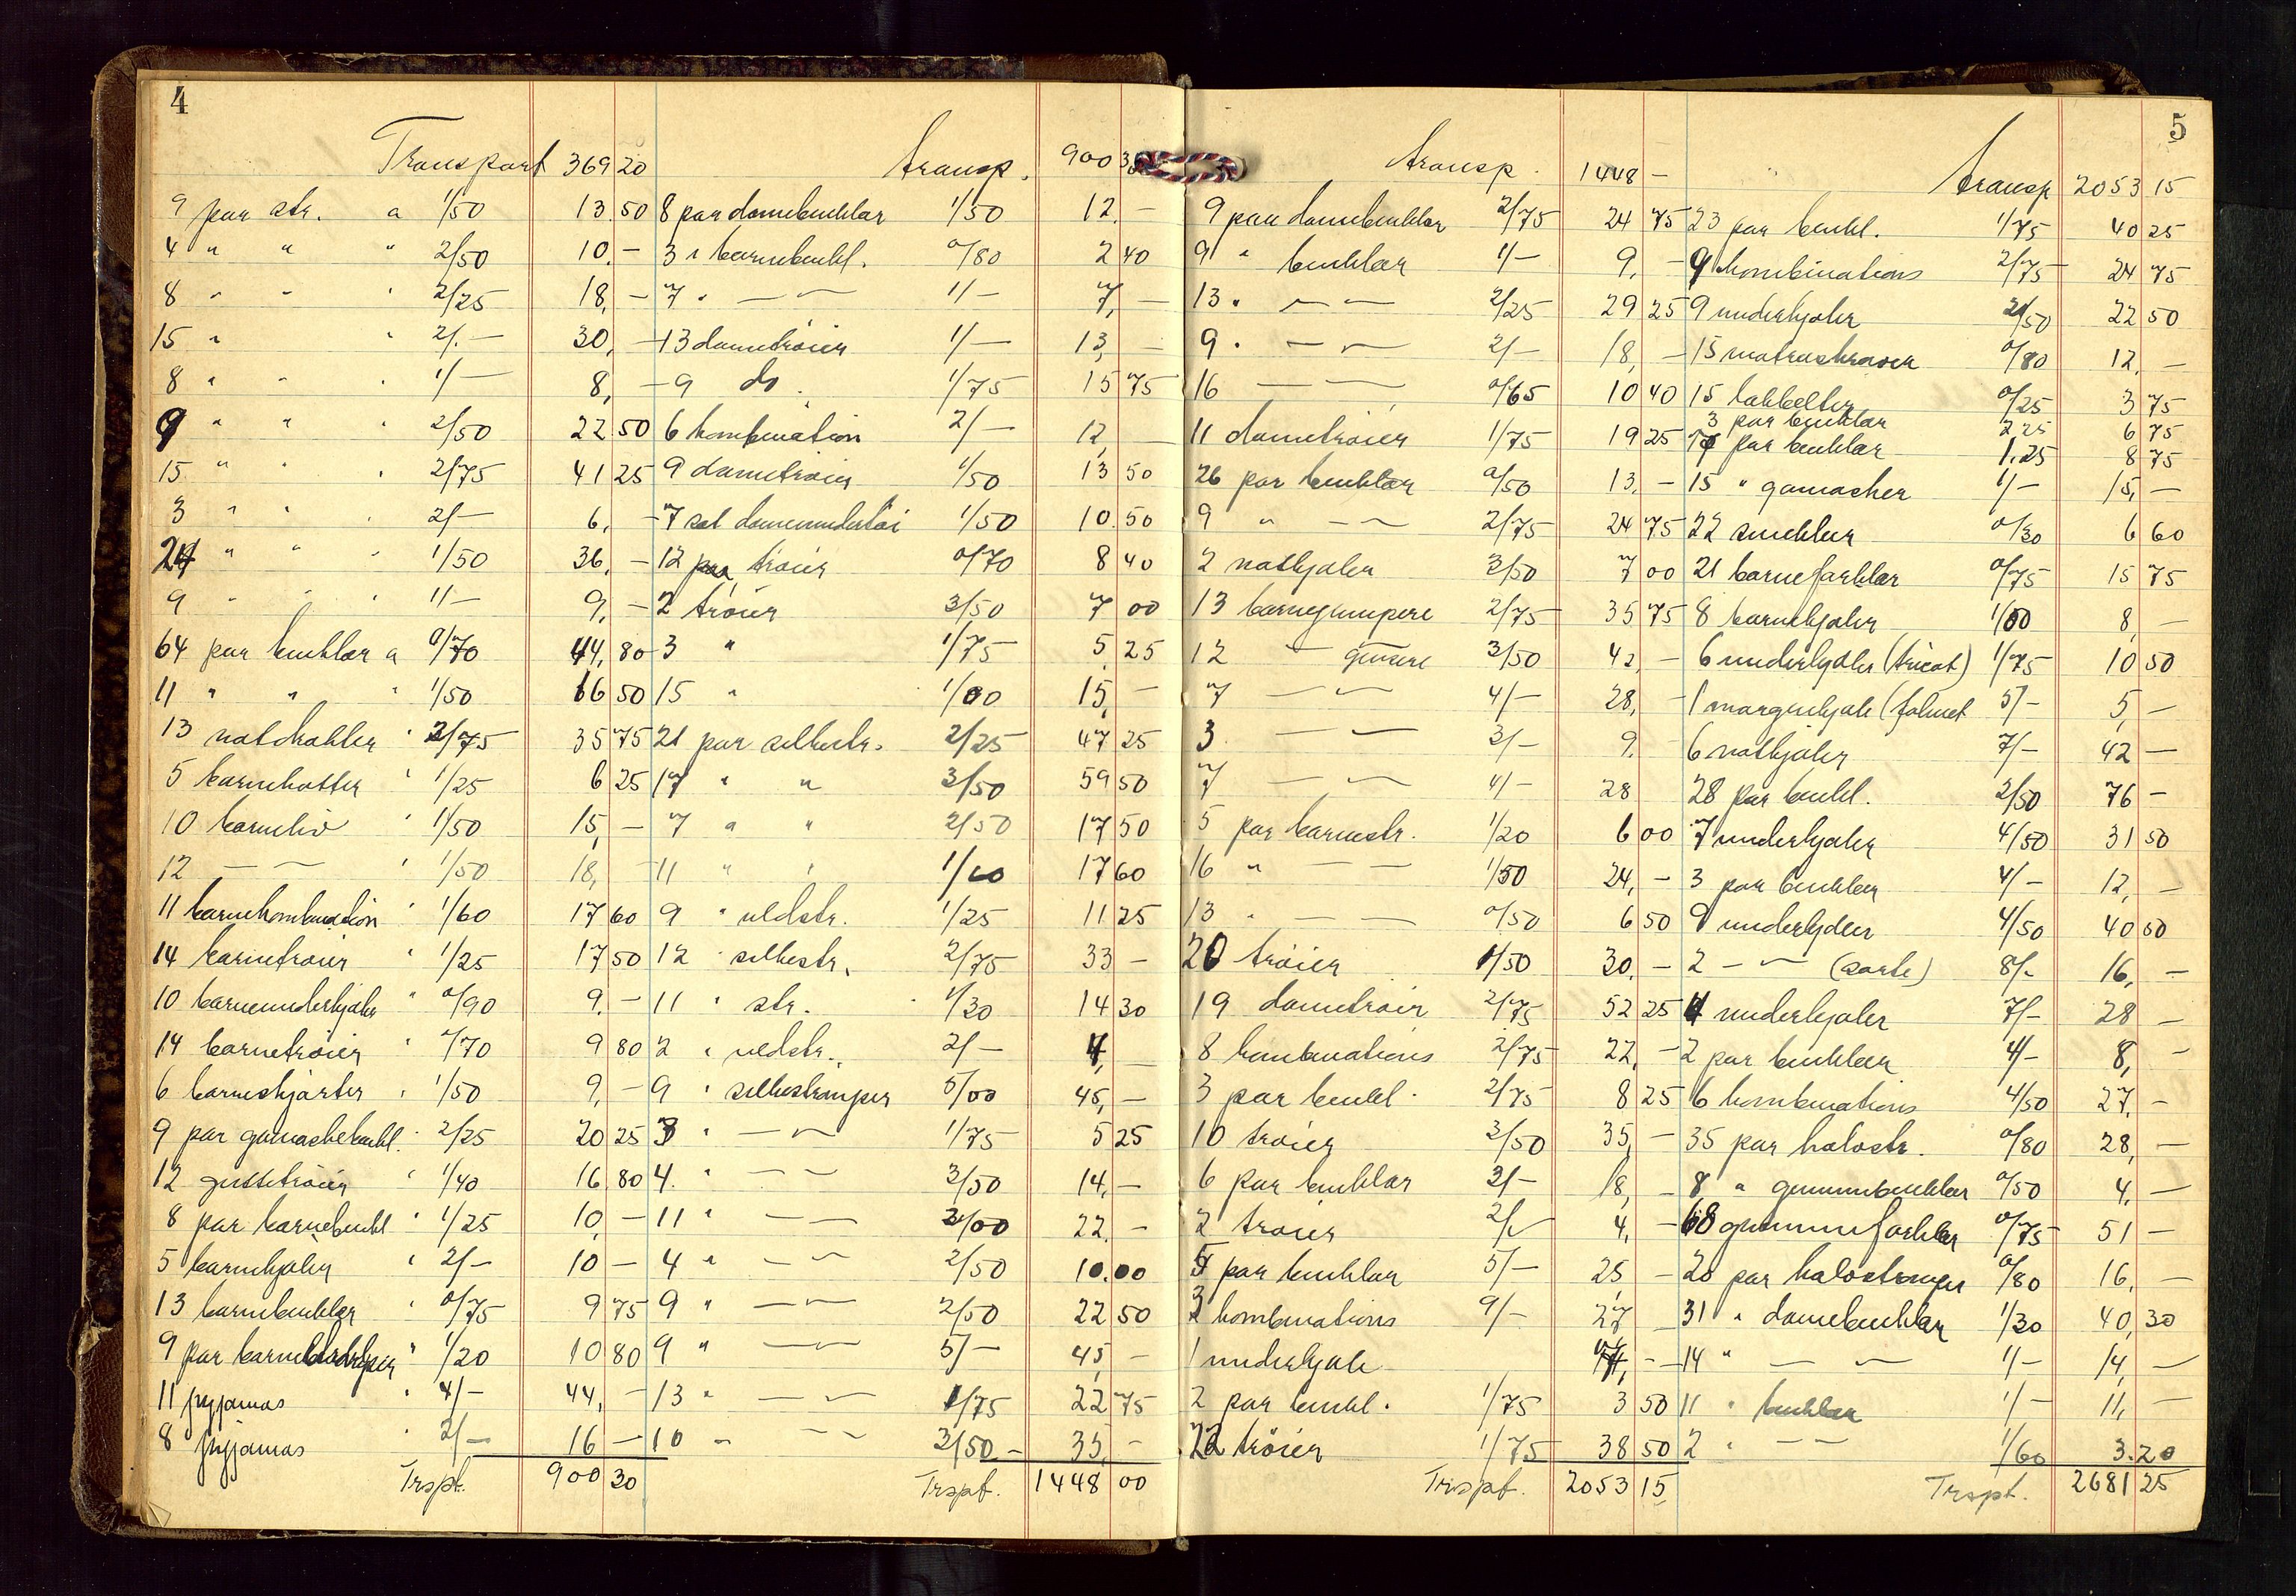 4
Transport 369 20
9 par str. a 1/50 13.50
4 " " " 2/50 10.-
8 " " " 2/25 18,-
15 " " 2/.- 30,-
8 " " " 1/- 8,-
9 " " " 2/50 22 50
15 " " " 2/75 41 25
3 " " " 2/- 6,-
24 " " " 1/50 36,-
9 " " " 1/- 9,-
64 par buklar a 0/70 44,80
11 " " " 1/50 16 50
13 " 2/75 35 75
5 barnehatter " 1/25 6 25
10 barneliv " 1/50 15,-
12 — — " 1/50 18,-
11 barnekombination " 1/60 17 60
14 barnetröier " 1/25 17 50
10 barneunderkjoler " 0/90 9.-
14 barnetröier " 0/70 9 80
6 barneskjörter " 1/50 9,-
9 par gamachebukl. " 2/25 20 25
12 tröier " 1/40 16 80
8 par barnebukl " 1/25 10,-
5 barnekjoler " 2/- 10 -
13 barnebuklar " 0/75 9 75
9 par " 1/20 10 80
11 pyjamas " 4/- 44,-
8 pyjamas " 2/- 16 -
Trspt. 900 30
transp. 900 30
8 par damebuklar 1/50 12.-
3 " barnebukl. 0/80 2 40
7 " — — 1/- 7,-
13 dametröier 1/- 13,-
9 do. 1/75 15 75
6 kombination 2/- 12,-
9 dametröier 1/50 13 50
7 set dameundertöi 1/50 10.50
12 tröier 0/70 8 40
2 tröier 3/50 7 00
3 " 1/75 5,25
15 " 1/00 15,-
21 par silkestr. 2/25 47 25
17 " " 3/50 59 50
7 " " 2/50 17 50
11 " " 1/60 17 60
9 " uldstr. 1/25 11 25
12 " silkestr. 2/75 33 -
11 " str. 1/30 14 30
2 " uldstr. 2/- 4,-
9 " silkeströmper 5/00 45,-
3 " — — 1/75 5 25
4. " — — 3/50 14,-
11 " — — 2/00 22.-
4 " — — 2/50 10.00
9 " — — 2/50 22 50
9 " — — 5/- 45,-
13 " — — 1/75 22 75
10 " — — 3/50 - 35,-
Trspt. 1448 00
5
transp. 1448 -
9 par damebuklar 2/75 24 75
9 " buklar 1/- 9,-
13 " — — 2/25 29 25
9 " — — 2/- 18,-
16 — — 0/65 10 40
11 dametröier 1/75 19 25
26 par buklar 0/50 13,-
9 " — — 2/75 24 75
2 natkjoler 3/50 7 00
13 barnegumpere 2/75 35 75
12 " gensere 3/50 42,-
7 — — 4/- 28,-
3 — — 3/- 9.
7 — — 4/- 28
5 par barnestr. 1/20 6 00
16 " — — 1/50 24,-
13 " — — 0/50 6 50
20 tröier 1/50 30.-
19 dametröier 2/75 52 25
8 kombinations 2/75 22,-
3 par bukl. 2/75 8 25
10 tröier 3/50 35,-
6 par buklar 3/- 18,-
2 tröier 2/- 4,-
5 par buklar 5/- 25,-
3 kombinations 9/- 27 -
1 underkjole
2 par bukl. 1/75 3 50
22 tröier 1/75 38 50
Trspt. 2053 15
transp 2053 15
23 par bukl. 1/75 40 25
9 kombinations 2/75 24 75
9 underkjoler 2/50 22 50
15 0/80 12.-
15 0/25 3 75
3 par buklar 2 25 6 75
7 par buklar 1.25 8 75
15 " gamacher 1/- 15,-
22 smekker 0/30 6 60
21 barneforklær 0/75 15 75
8 barnekjoler 1/00 8,-
6 underkjoler (tricot) 1/75 10 50
1 morgenkjole ( 5/- 5,-
6 natkjoler 7/- 42 -
28 par bukl. 2/50 76 -
7 underkjoler 4/50 31 50
3 par buklar 4/- 12,-
9 underkjoler 4/50 40 50
2 — — (sorte) 8/- 16,-
4 underkjoler 7/- 28 -
2 par buklar 4/- 8,-
6 kombinations 4/50 27,-
35 par halvstr. 0/80 28,-
8 " gummibuklar 0/50 4,-
68 gummiforklær 0/75 51 -
20 par halvströmper 0/80 16,-
31 " damebuklar 1/30 40,30
14 " — — 1/- 14,-
11 " buklar 1/- 11,-
2 " — — 1/60 3.20
Trspt. 2681 25